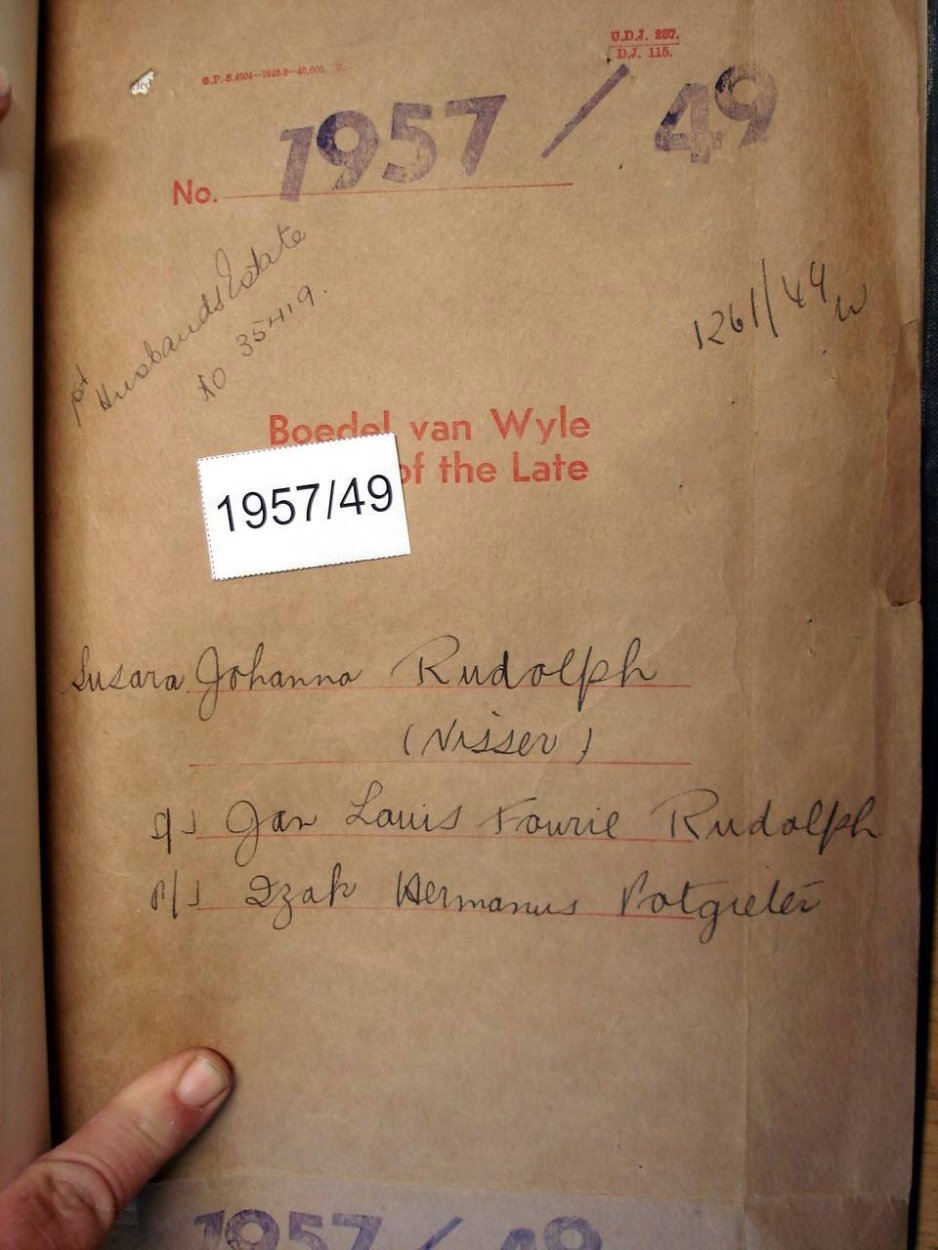 U.D.J. 257.
D.J. 115.
G.P.-S.4304—1948-9—40,000. S.
1957 / 49
No.
1st Husbands Estate
No 35419.
1261/49 W
Boedel van Wyle
of the Late
1957/49
Susara Johanna Rudolph
(Visser)
s/s Jan Louis Fourie Rudolph
p/s Izak Hermanus Potgieter
1957 / 49